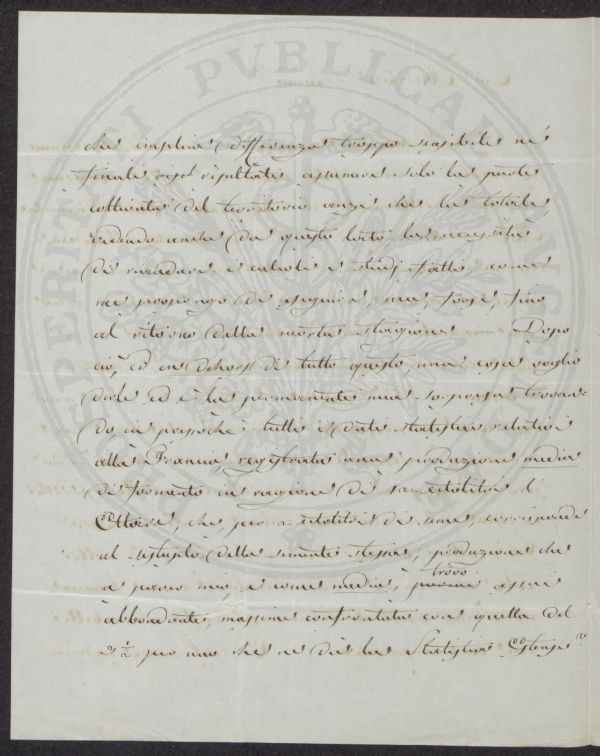 PVBLICAE
che implica differenza troppo sensibile nei
finali risultati assumere solo la parte
coltivata del territorio anzi che la totale,
vedendo anche da questo lato la necessità
di rivedere i calcoli e studj fatti, come
mi propongo di eseguire ma, forse, fino
al ritorno della morta stagione. Dopo
ciò, ed in di tutto questo una cosa voglio
dirle ed è la permanente mia sorpresa trovan-
do in pressochè tutti i dati statistici relativi
alla Francia, registrata una produzione media
di formento in ragione di ettolitri l'
Ettare, che, per 2 ettolitri di seme, corrisponde
al settuplo della semente stessa, produzione che
a parer mio, e come media, trovo assai
abbondante, massime confrontata con quella del
3 ½ per uno che ne dà la Statistica Estense